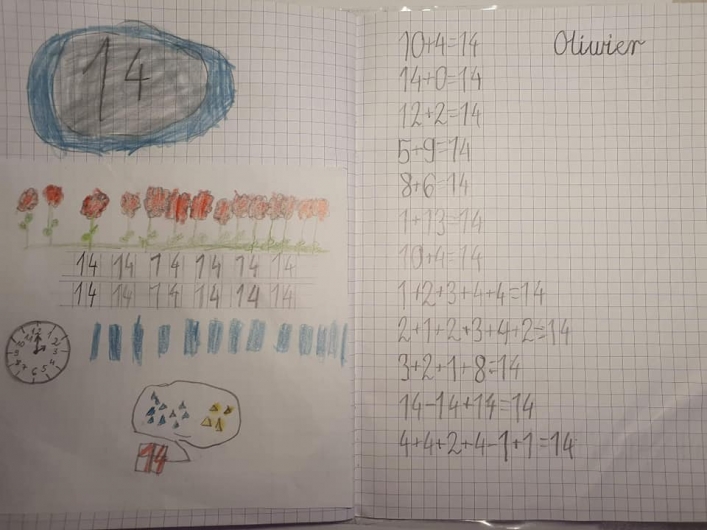 14
14 14 14 14 14 14
14 14 14 14 14 14
12 1 2 3 4 5 6 7 8 9 10 11
14
Oliwier
10+4=14
14+0=14
12+2=14
5+9=14
8+6=14
1+13=14
10+4=14
1+2+3+4+4=14
2+1+2+3+4+2=14
3+2+1+8=14
14-14+14=14
4+4+2+4-1+1=14